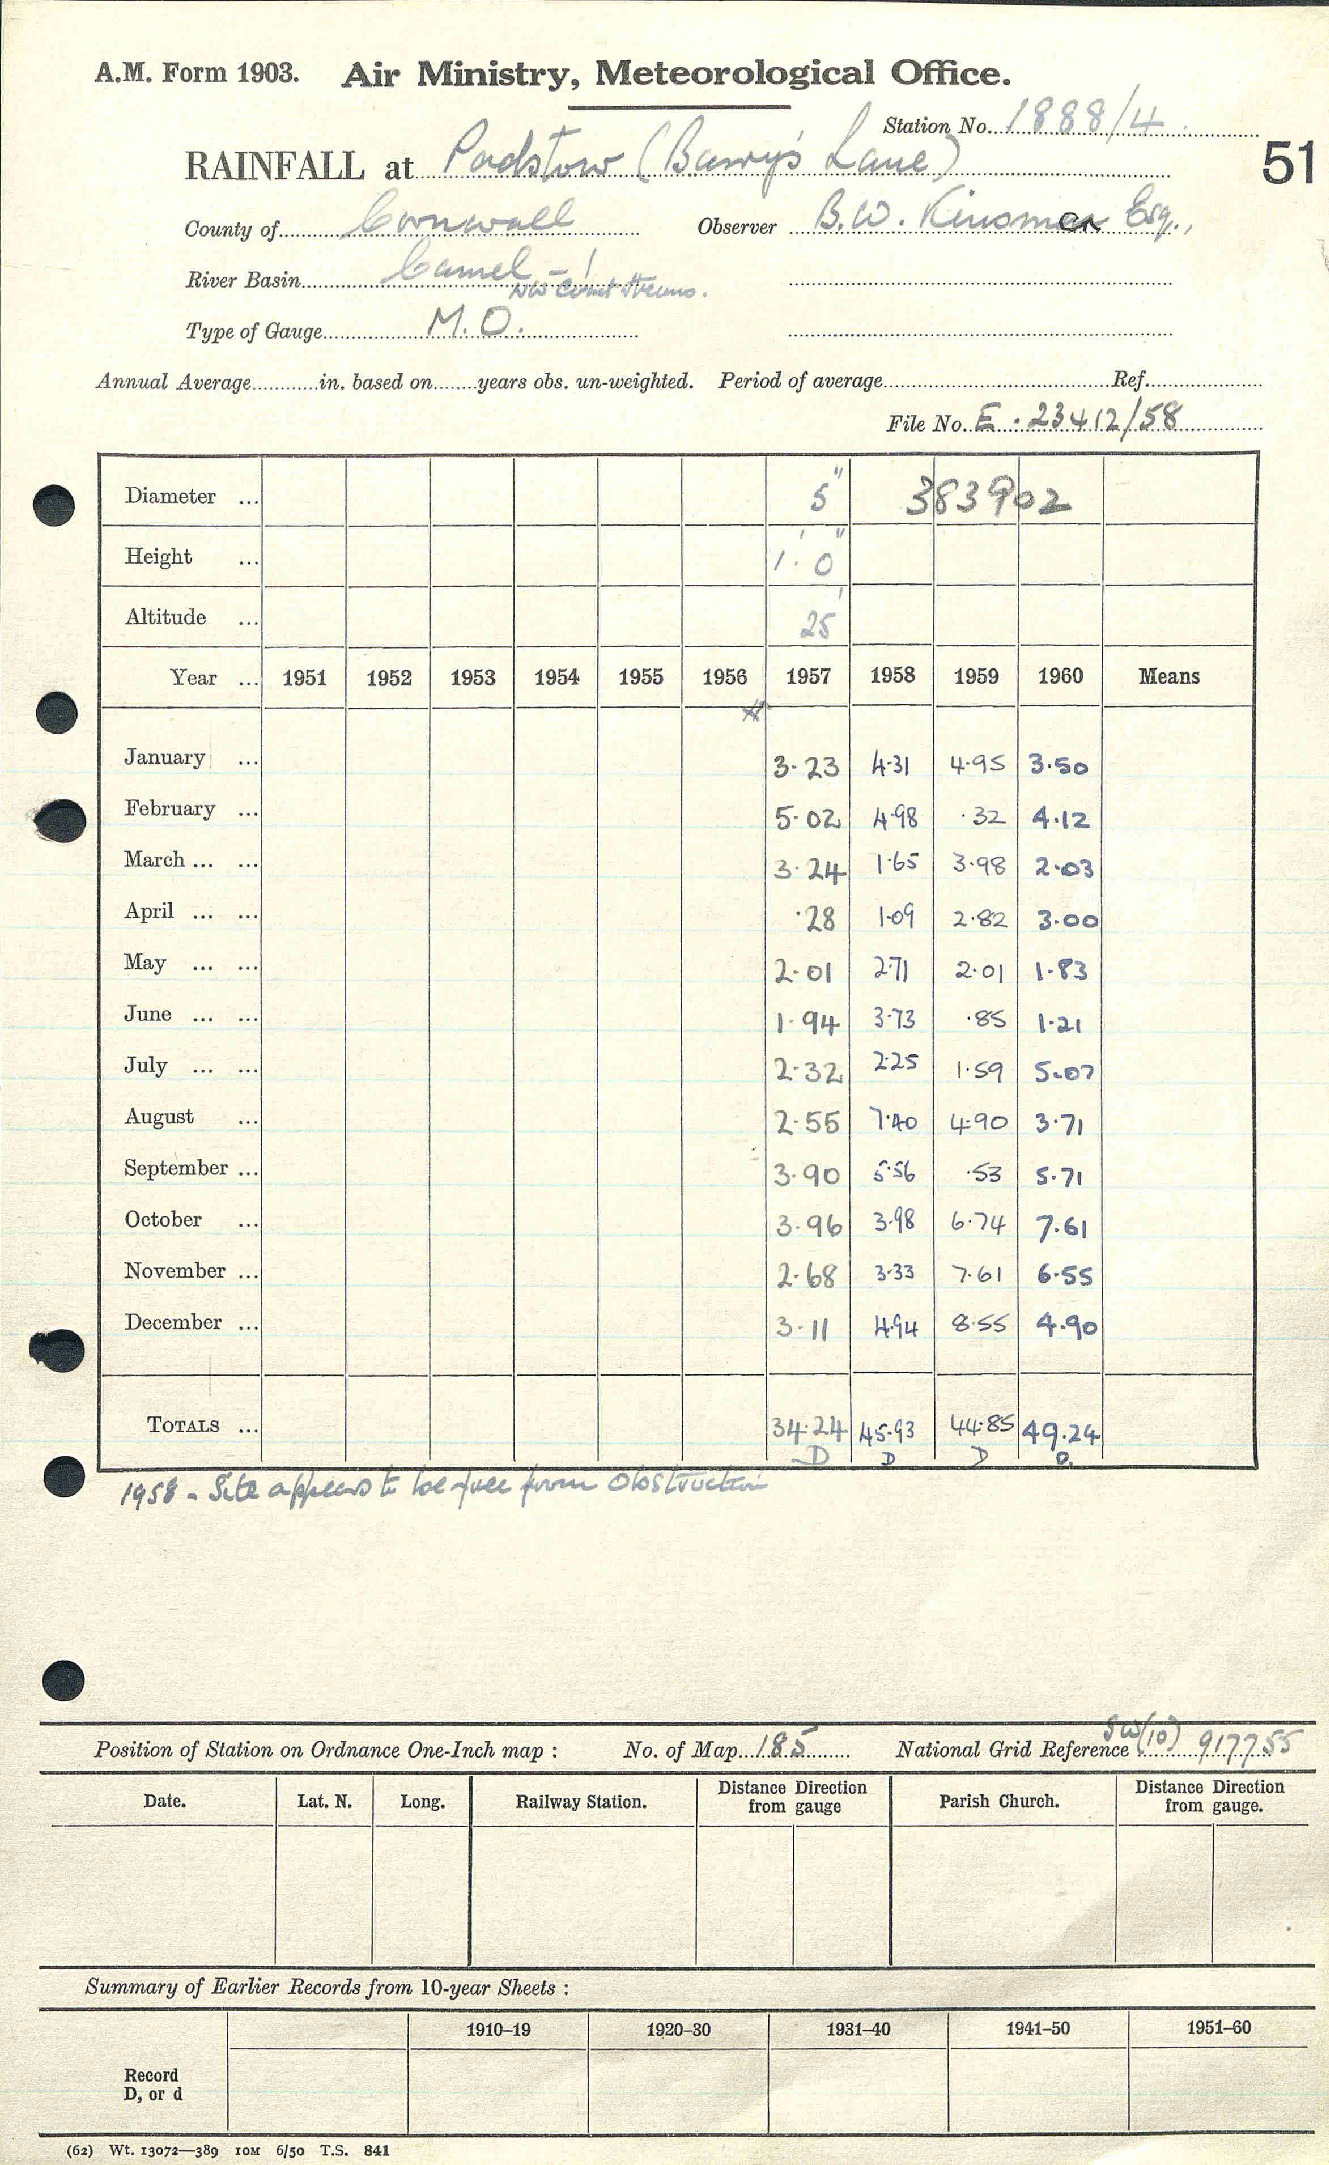 A.M. Form 1903. Air Ministry, Meteorological Office.
Station No. 1888/4
51
RAINFALL at Padstow (Barry's Lane)
County of Cornwall Observer B.W. Kinsman Esq.,
River Basin Camel - 1
NW Coast Streams.
Type of Gauge M.O.
Annual Average in. based on years obs. un-weighted. Period of average Ref.
File No. E. 23412/58
Diameter ... 5" 383902
Height ... 1' 0"
Altitude ... 25'
Year ... 1951 1952 1953 1954 1955 1956 1957 1958 1959 1960 Means
January ... 3.23 4.31 4.95 3.50
February ... 5.02 4.98 .32 4.12
March ... ... 3.24 1.65 3.98 2.03
April ... ... .28 1.09 2.82 3.00
May ... ... 2.01 2.71 2.01 1.83
June ... ... 1.94 3.73 .85 1.21
July ... ... 2.32 2.25 1.59 5.07
August ... 2.55 7.40 4.90 3.71
September ... 3.90 5.56 .53 5.71
October ... 3.96 3.98 6.74 7.61
November ... 2.68 3.33 7.61 6.55
December ... 3.11 4.94 8.55 4.90
TOTALS ... 34.24 45.93 44.85 49.24
D D D D.
1958 - Site appears to be free from obstruction
Position of Station on Ordnance One-Inch map : No. of Map 185 National Grid Reference SW(10) 917755
Date. Lat. N. Long. Railway Station. Distance from gauge Direction Parish Church. Distance from gauge. Direction
Summary of Earlier Records from 10-year Sheets :
1910–19 1920–30 1931–40 1941–50 1951–60
Record
D, or d
(62) Wt. 13072—389 10M 6/50 T.S. 841